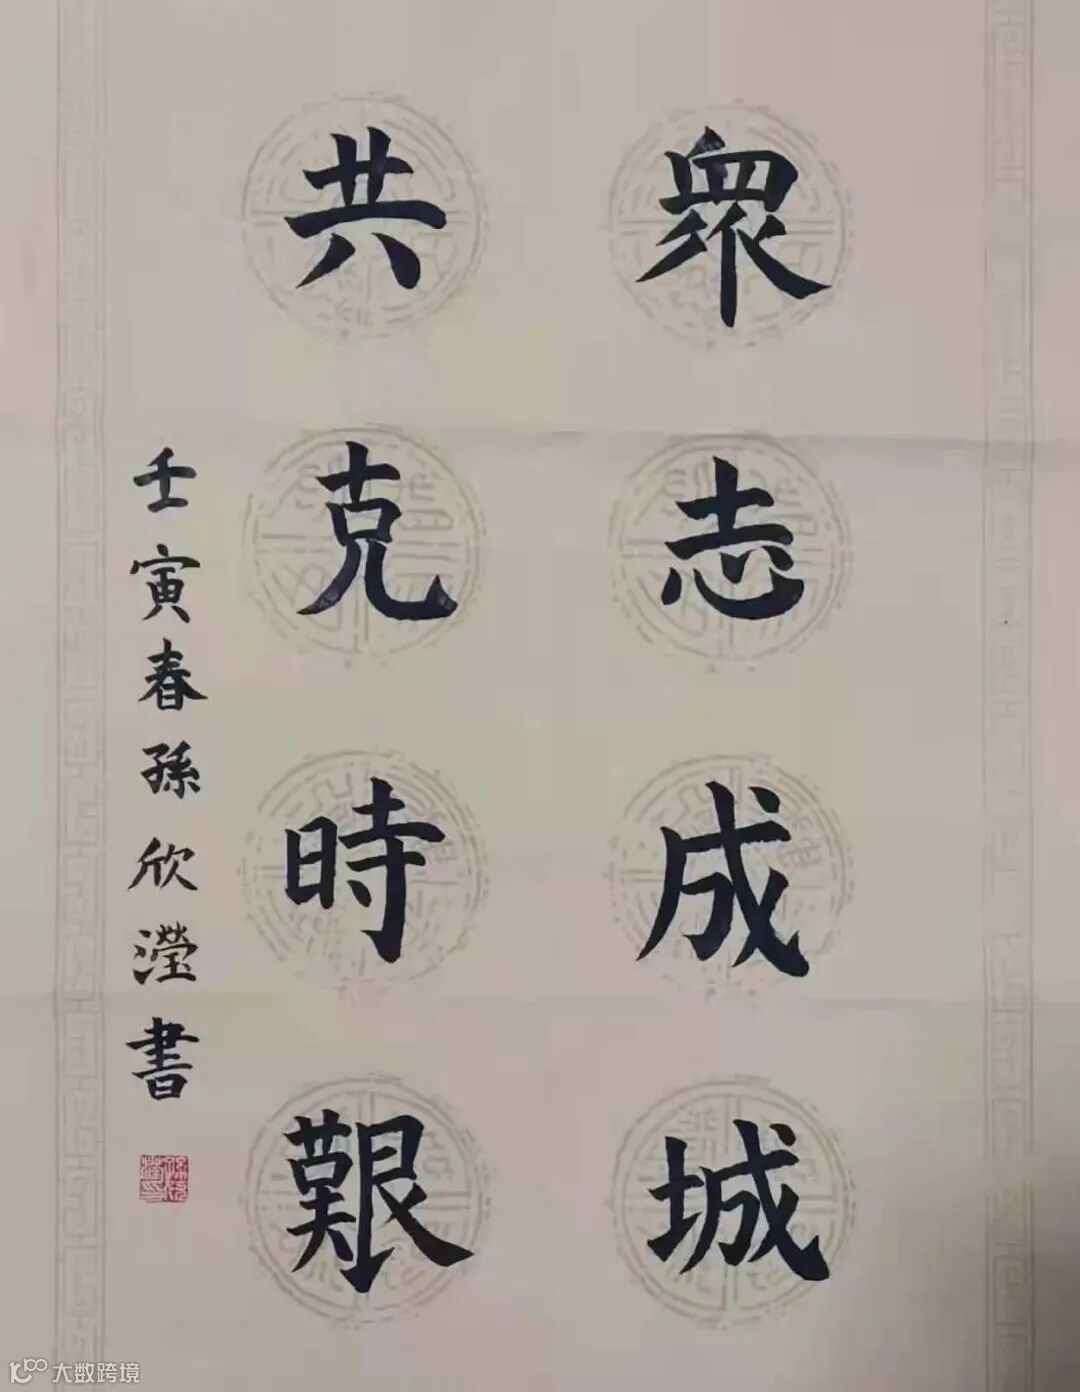 衆志成城
共克時艱
壬寅春孫欣瀅書
大数跨境